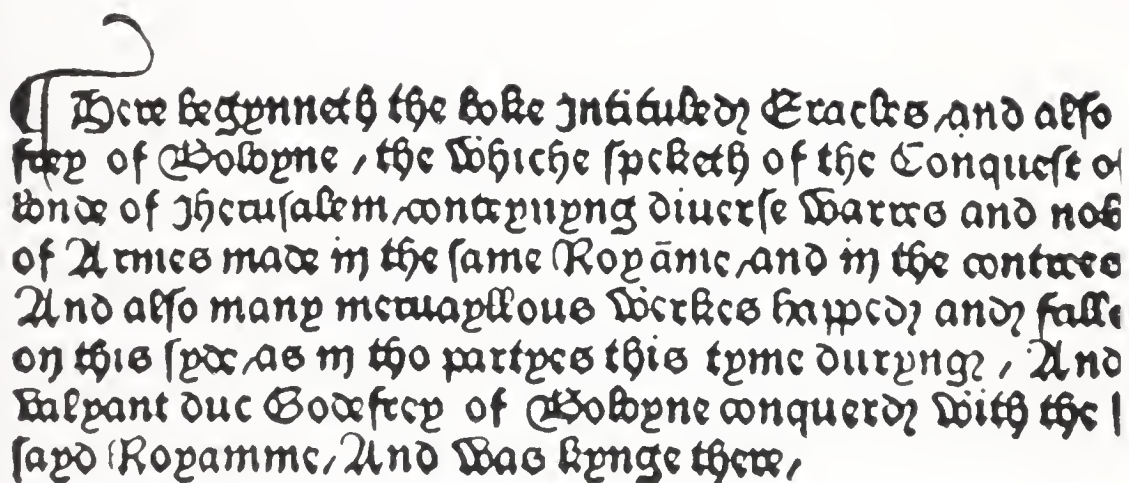 ¶ Here begynneth the boke Intituled Eracles, and also
frey of Boloyne, the whiche speketh of the Conquest o
londe of Jherusalem, conteynyng diuerse warres and nob
of Armes made in the same Royāme, and in the contrees
And also many meruayllous werkes happed and falle
on this syde, as in tho partyes this tyme duryng, And
valyant duc Godefrey of Boloyne conquerd with the
sayd Royamme, And was kynge there,